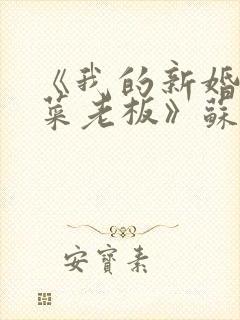 《我的新婚
菜老板》蘇
安寶素